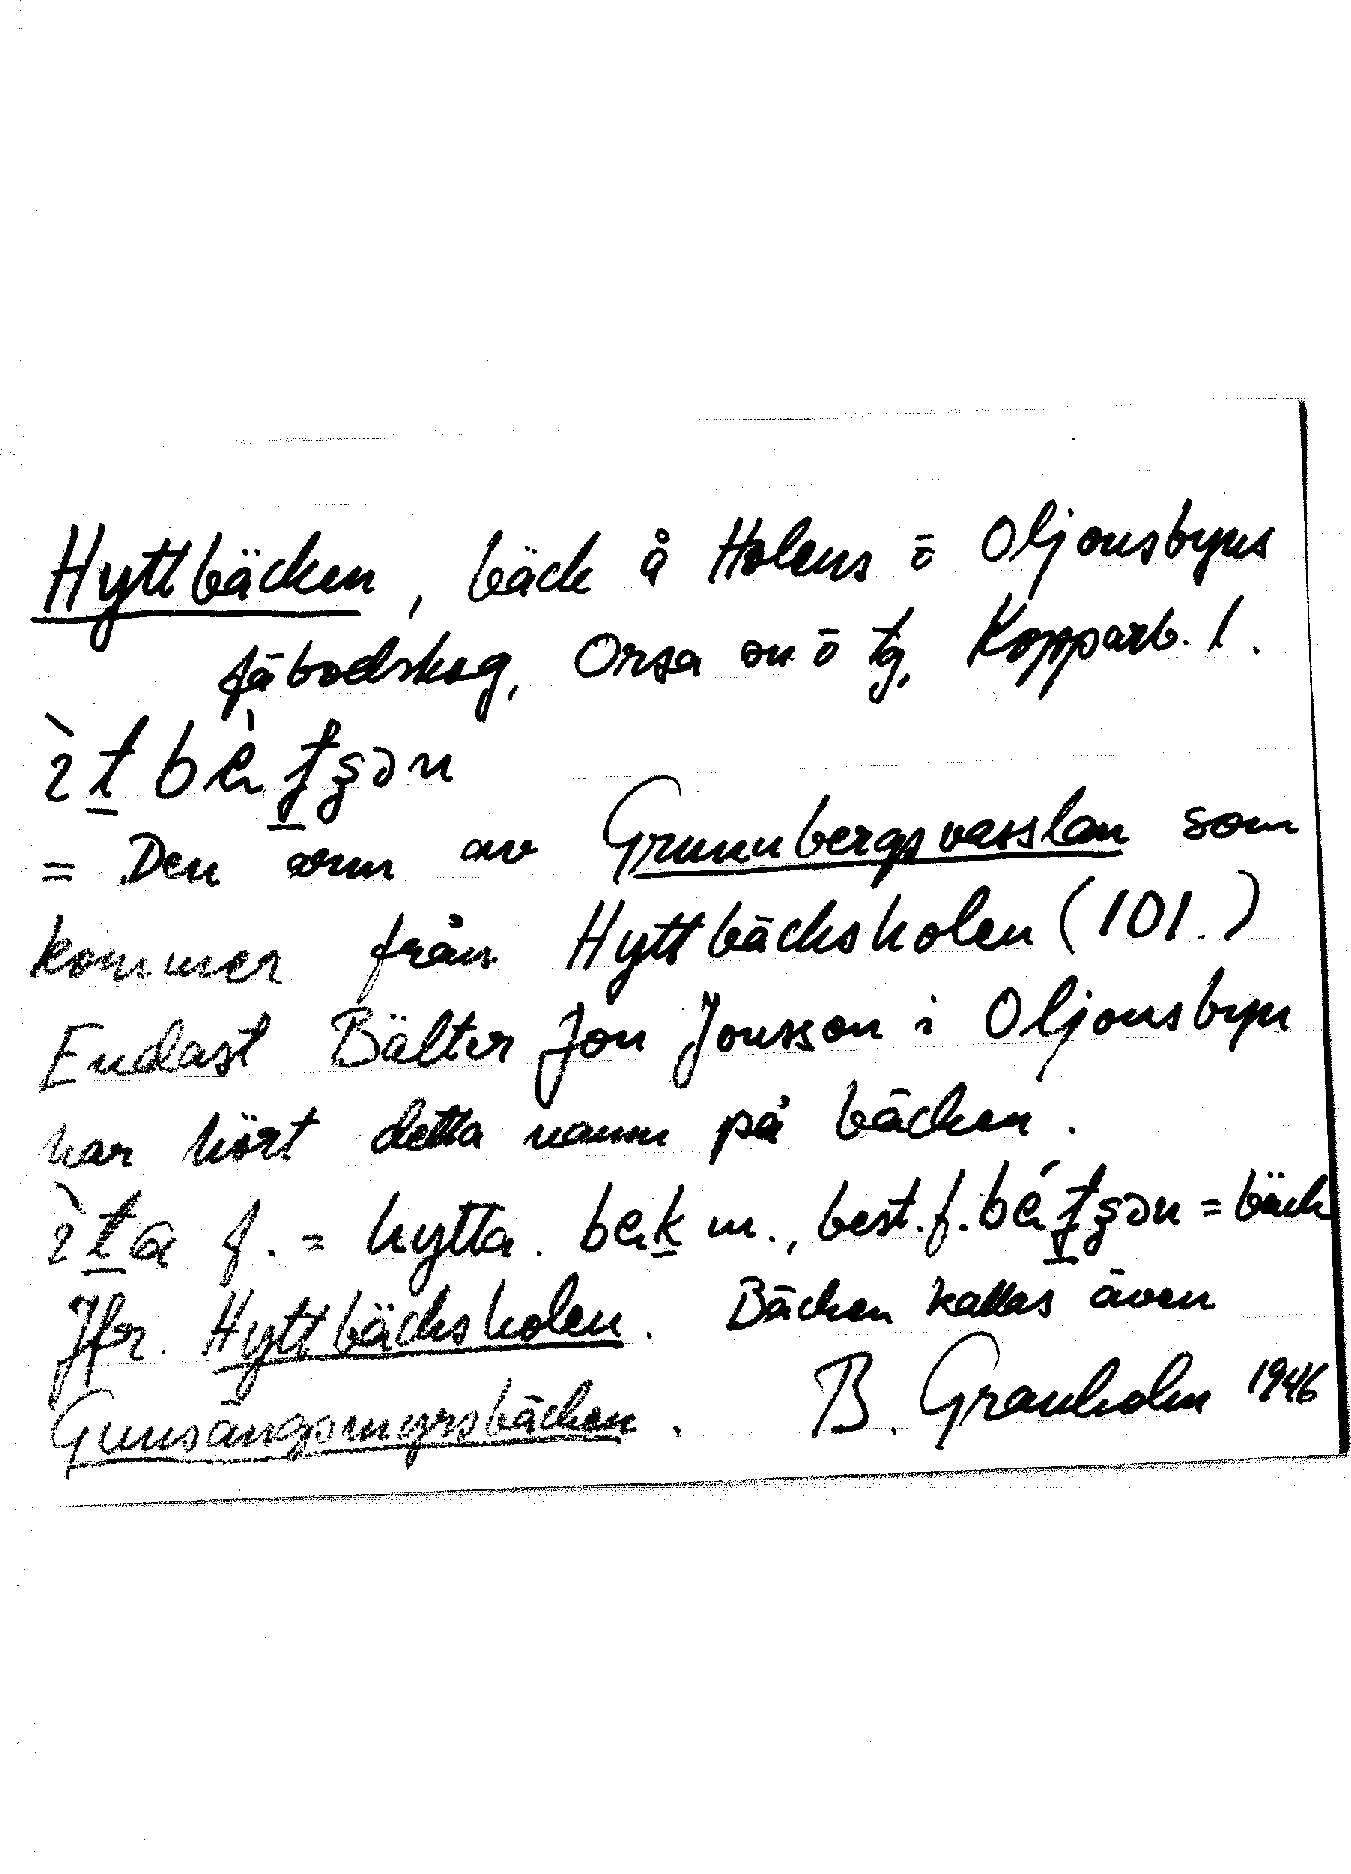 Hyttbäcken, bäck å Holens o Oljonsbyns
fäbodskog, Orsa sn o tg, Kopparb. l.
= Den arm av Grunnbergsvasslan som
kommer från Hyttbäckskolen (101.)
Endast Bälter Jon Jonsson i Oljonsbyn
har hört detta namn på bäcken.
f. = hytta. m., best. f. = bäck
Jfr. Hyttbäckskolen. Bäcken kallas även
Gunsängsmyrsbäcken. B. Granholm 1946